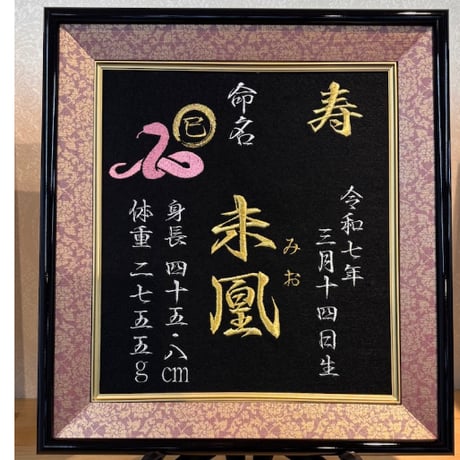 寿
令和七年
三月十四日生
命名
未凰
みお
巳
身長 四十五・八cm
体重 二七五五g